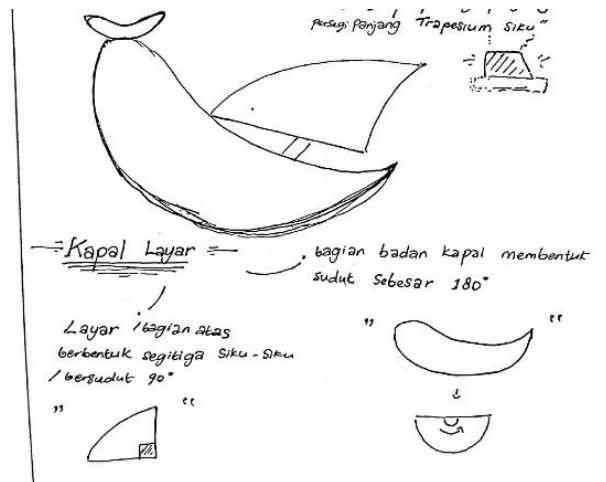 persegi panjang Trapesium siku"
Kapal Layar
. bagian badan kapal membentuk
sudut sebesar 180°
Layar / bagian atas
berbentuk segitiga siku-siku
/ bersudut 90°